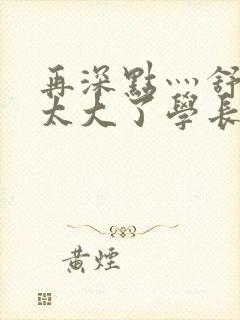 再深點灬舒
太大了學長
黃煙